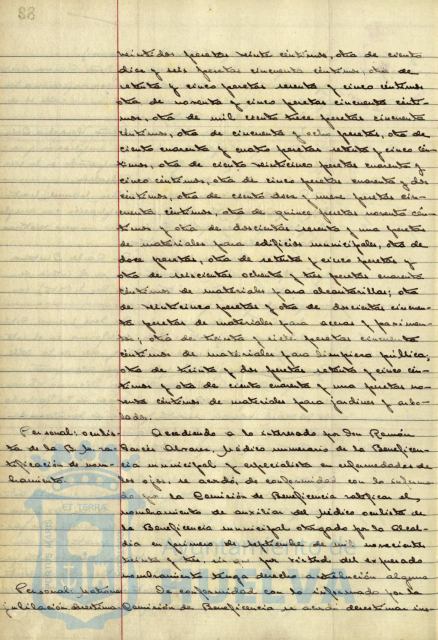 88
veintidos pesetas veinte céntimos, otra de ciento
diez y seis pesetas cincuenta céntimos, otra de
setenta y cinco pesetas sesenta y cinco céntimos
otra de noventa y cinco pesetas cincuenta cénti-
mos, otra de mil ciento trece pesetas cincuenta
céntimos, otra de cincuenta y ocho pesetas, otra de
ciento cuarenta y cuatro pesetas setenta y cinco cén-
timos, otra de ciento veinticinco pesetas cuarenta y
cinco céntimos, otra de cinco pesetas cuarenta y dos
céntimos, otra de ciento doce y nueve pesetas cin-
cuenta céntimos, otra de quince pesetas noventa cén-
timos y otra de doscientas sesenta y una pesetas
de materiales para edificios municipales, otra de
doce pesetas, otra de setenta y cinco pesetas y
otra de seiscientas ochenta y tres pesetas cuarenta
céntimos de materiales para alcantarillas; otra
de veinticinco pesetas y otra de doscientas cincuen-
ta pesetas de materiales para aceras y pavimen-
tos; otra de treinta y siete pesetas cincuenta
céntimos de materiales para limpieza pública;
otra de treinta y dos pesetas setenta y cinco cén-
timos y otra de ciento cuarenta y una pesetas no-
venta céntimos de materiales para jardines y arbo-
lados.
Personal: oculis-
ta de la B. ra-
tificación de nom-
bramiento.
Accediendo a lo interesado por Don Ramón
García Alvarez, Médico numerario de la Beneficen-
cia municipal y especialista en enfermedades de
los ojos, se acordó, de conformidad con lo informa-
do por la Comisión de Beneficencia ratificar el
nombramiento de auxiliar del Médico oculista de
la Beneficencia municipal otorgado por la Alcal-
día en primero de septiembre de mil novecientos
treinta y tres, sin que por virtud del expresado
nombramiento tenga derecho a retribución alguna
Personal:
jubilación
De conformidad con lo informado por la
Comisión de Beneficencia se acordó desestimar ins-
ET TERRA
Ayuntamiento de